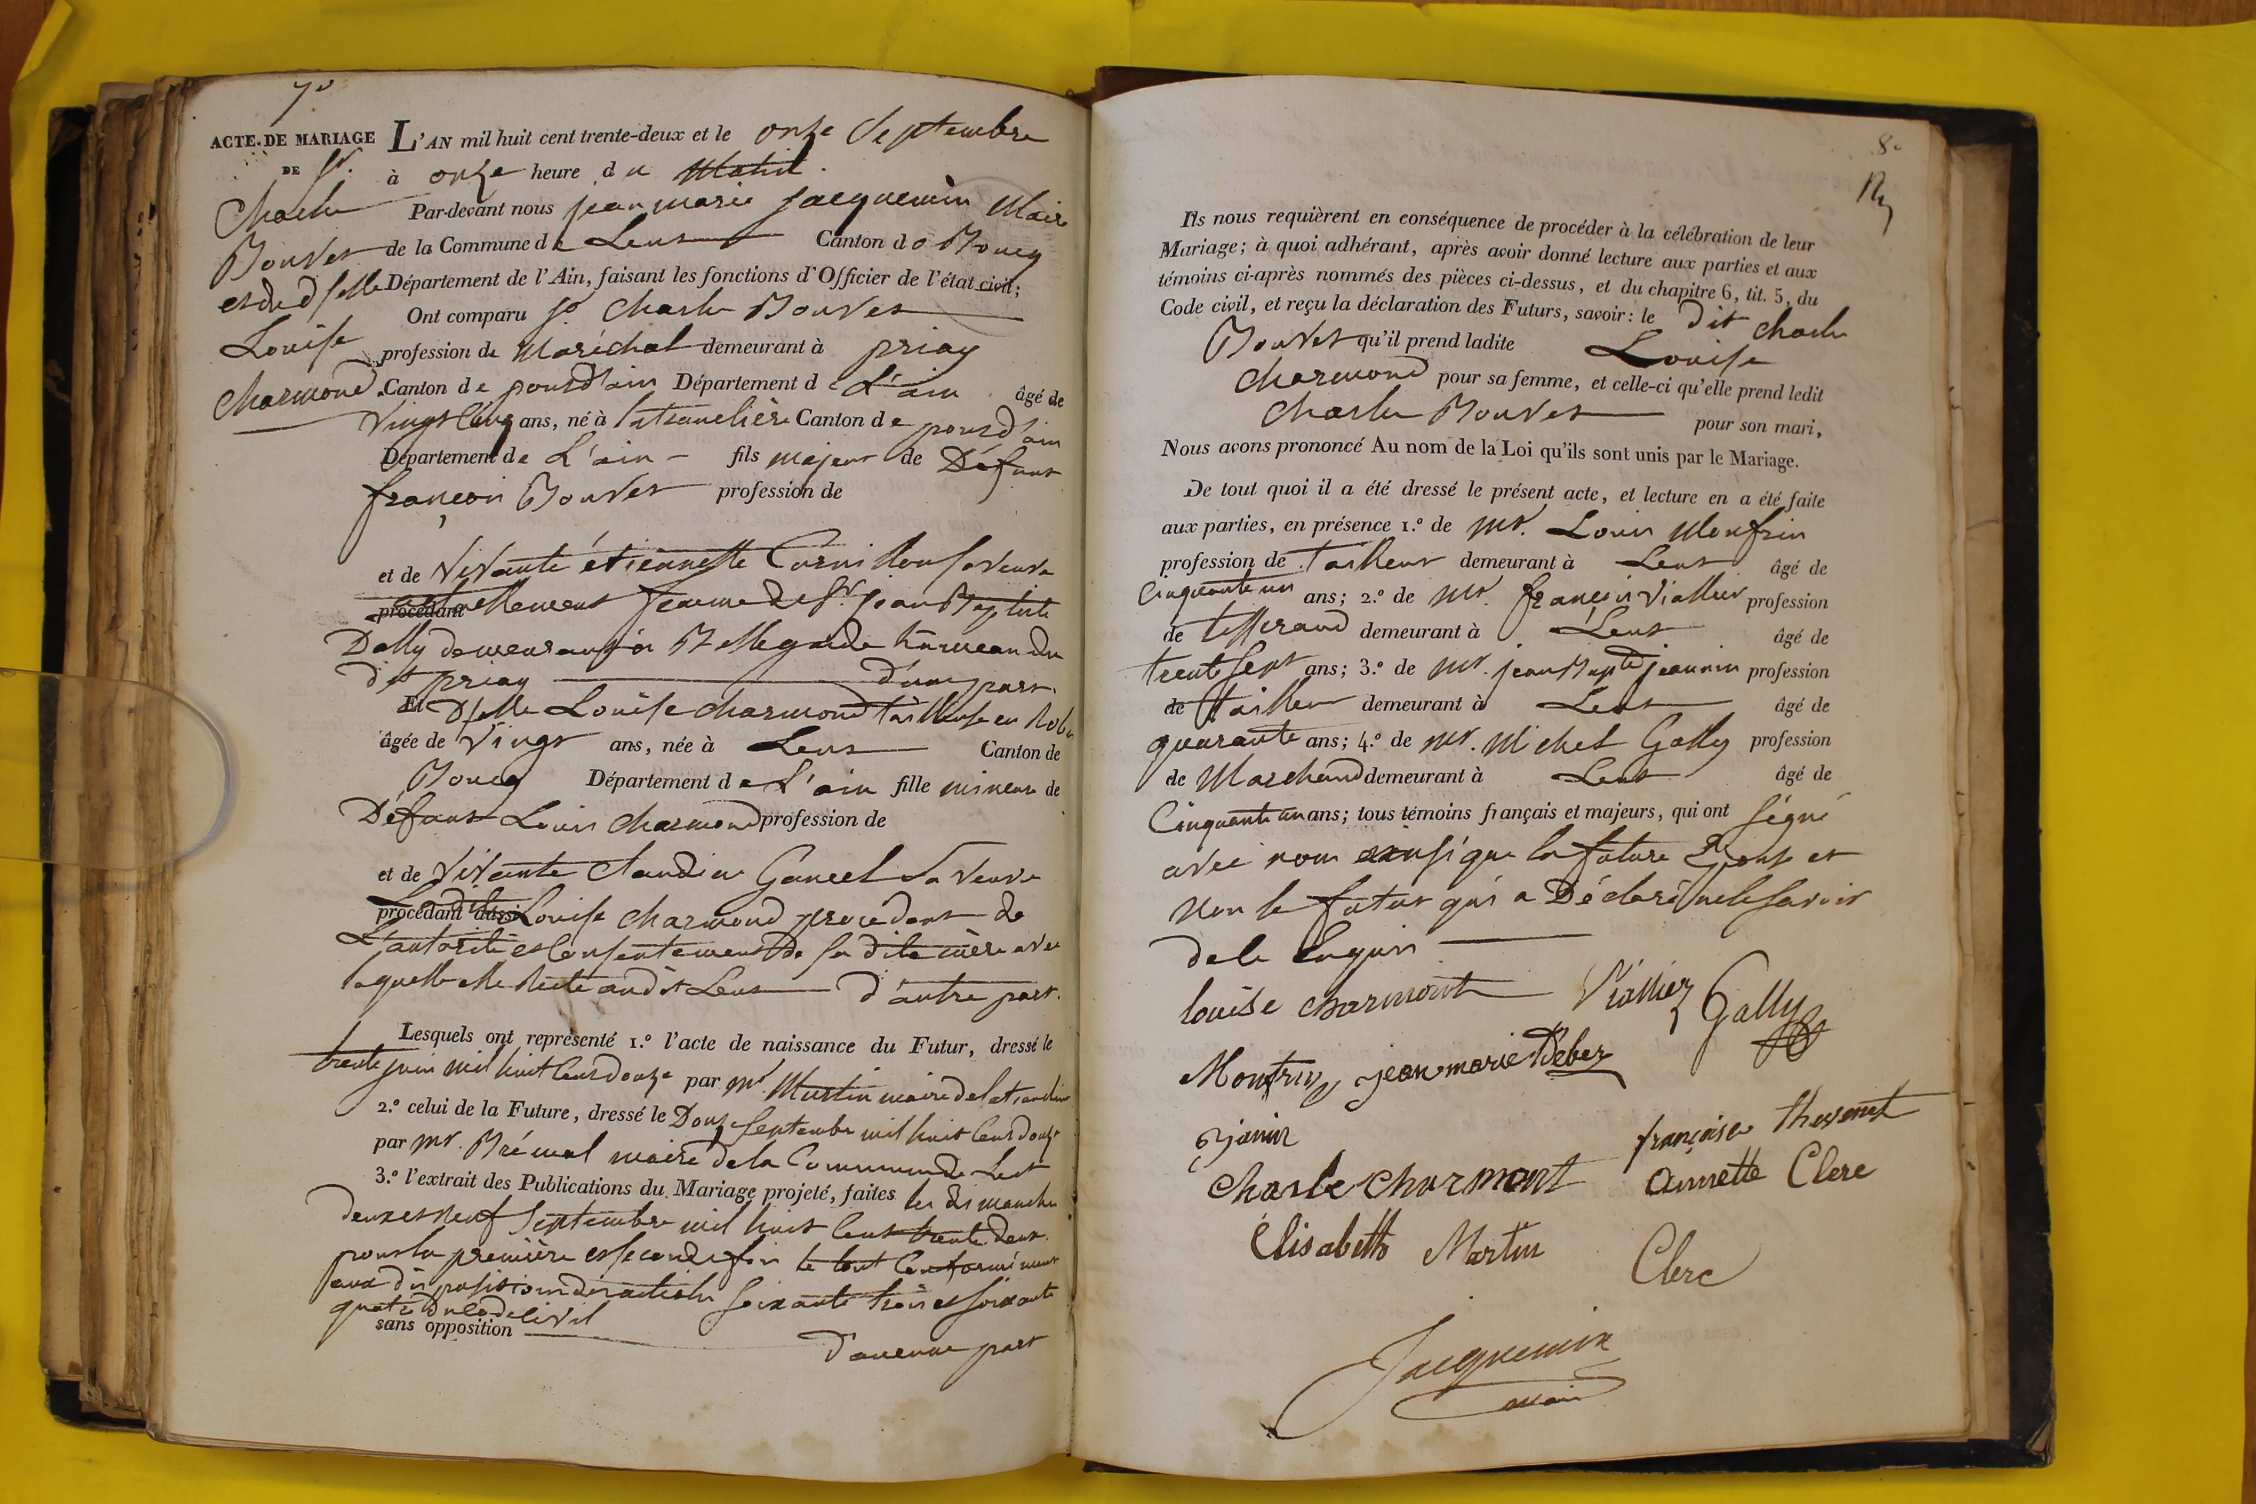 7e
ACTE DE MARIAGE
DE Sr.
Charle
Bouvet
et de dselle
Louise
Charmond
L'AN mil huit cent trente-deux et le onze Septembre
à onze heure du Matin.
Par-devant nous jean marie jacquemin Maire
de la Commune de Lent Canton de Bourg
Département de l'Ain, faisant les fonctions d'Officier de l'état civil;
Ont comparu sr Charle Bouvet
profession de Maréchal demeurant à priay
Canton de pontd'ain Département de L'ain âgé de
Vingt Cinq ans, né à latranclière Canton de pontd'ain
Département de L'ain fils majeur de Défunt
françois Bouvet profession de
et de Vivante étiennette Cornillon sa veuve
procédant actuellement femme de sr. jean Baptiste
Dally demeurant à Bellegarde hameau du
dit priay d'une part.
Et Dselle Louise Charmond tailleuse en Robe
âgée de Vingt ans, née à Lent Canton de
Bourg Département de L'ain fille mineure de
Défunt Louis Charmond profession de
et de Vivante Claudine Gancel sa veuve
procédant aussi Ladite Louise Charmond procédant de
L'autorité et Consentement De sa dite mère avec
laquelle elle Reste audit Lent d'autre part.
Lesquels ont représenté 1.º l'acte de naissance du Futur, dressé le
trente juin mil huit Cent douze par mr. Martin maire de latranclière
2.º celui de la Future, dressé le Douze Septembre mil huit Cent douze
par mr. Brémal maire de la Commune de Lent
3.º l'extrait des Publications du Mariage projeté, faites les dimanches
deux et neuf Septembre mil huit Cent trente deux
pour la première et seconde fois le tout Conformément
aux dispositions des articles soixante trois et soixante
quatre du Code Civil
sans opposition
d'aucune part
8e
Ils nous requièrent en conséquence de procéder à la célébration de leur
Mariage; à quoi adhérant, après avoir donné lecture aux parties et aux
témoins ci-après nommés des pièces ci-dessus, et du chapitre 6, tit. 5, du
Code civil, et reçu la déclaration des Futurs, savoir: le dit Charle
Bouvet qu'il prend ladite Louise
Charmond pour sa femme, et celle-ci qu'elle prend ledit
Charle Bouvet pour son mari,
Nous avons prononcé Au nom de la Loi qu'ils sont unis par le Mariage.
De tout quoi il a été dressé le présent acte, et lecture en a été faite
aux parties, en présence 1.º de mr. Louis Monfrin
profession de tailleur demeurant à Lent âgé de
Cinquante un ans; 2.º de mr. françois Viallier profession
de tisserand demeurant à Lent âgé de
trente sept ans; 3.º de mr. jean Bapte jeannin profession
de tailleur demeurant à Lent âgé de
quarante ans; 4.º de mr. Michel Gally profession
de Marchand demeurant à Lent âgé de
Cinquante un ans; tous témoins français et majeurs, qui ont signé
avec nous ainsi que la future Epouse et
non le futur qui a Déclaré ne le savoir
de le Enquis
louise charmont Viallier Gally
Montrin jean marie Deber
janin françoise thevenet
Charle Charmont annette Clerc
Elisabeth Martin
Clerc
Jacquemin
maire